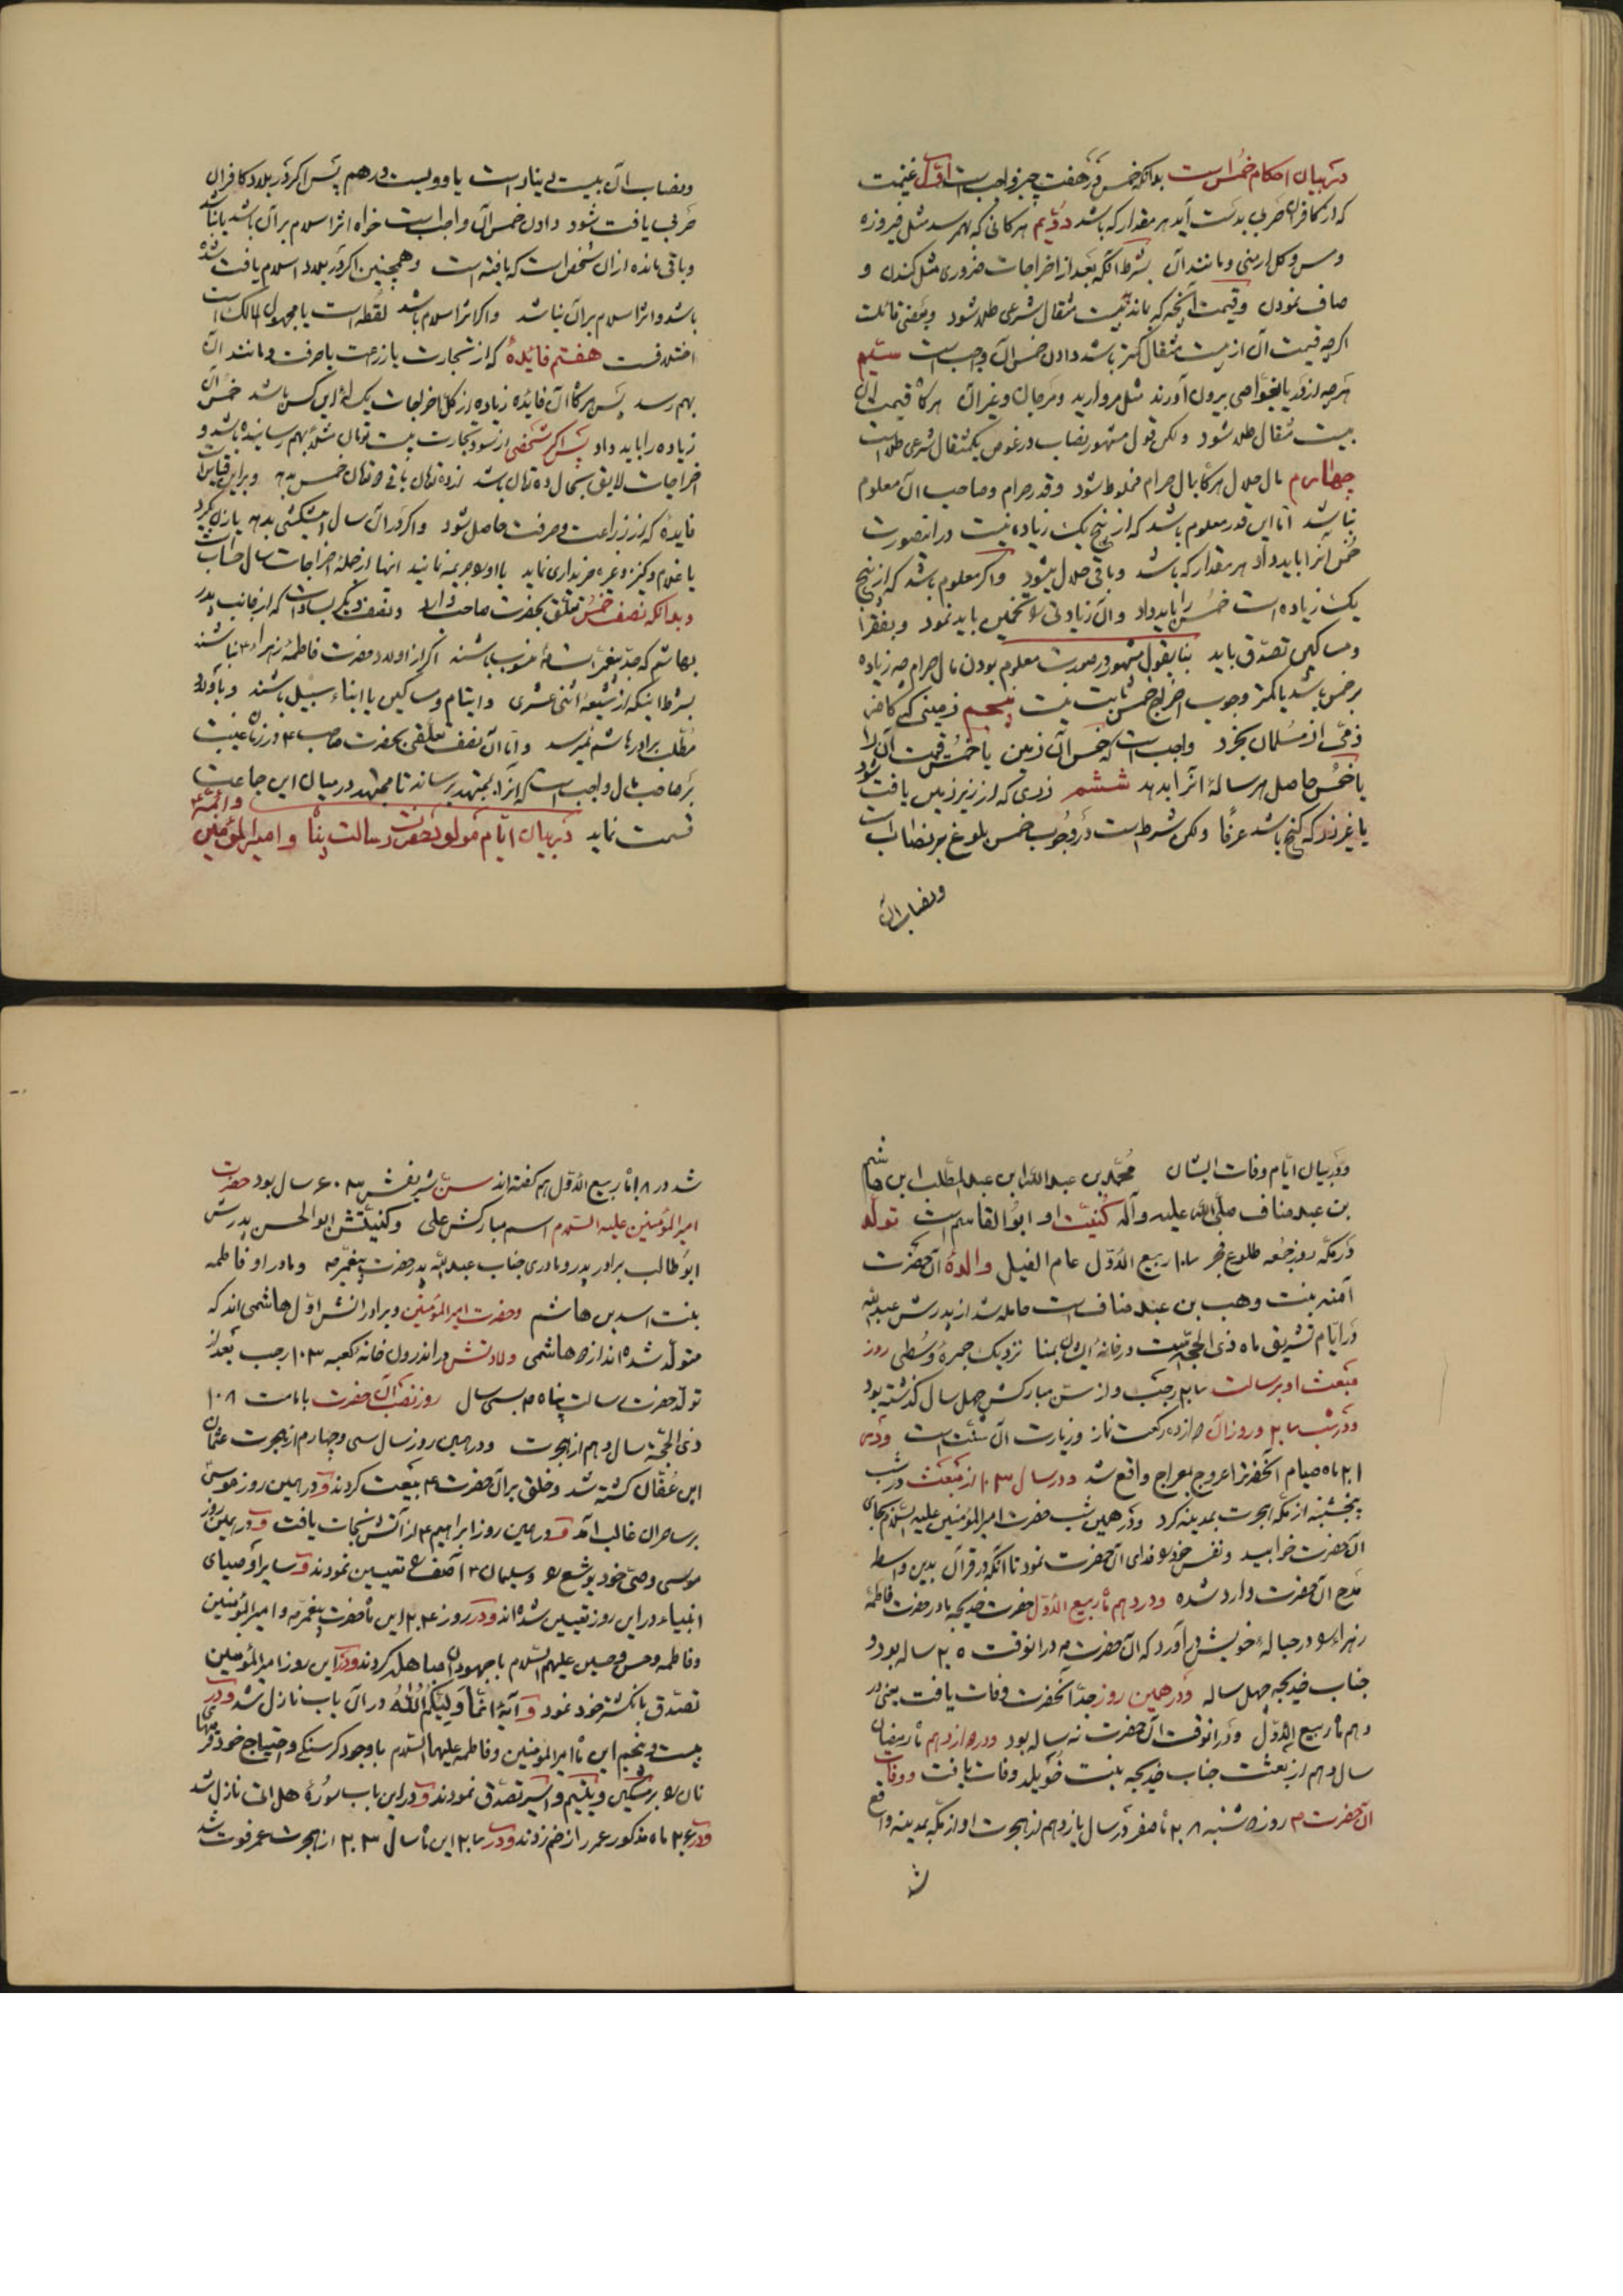 در بیان احکام خمس است بدانکه خمس در هفت چیز واجب است اول غنیمت
که از کافران حربی بدست آید هر مقدار که باشد دویم هر کانی که بهم رسد مثل فیروزه
و مس و کل ارمنی و مانند آن بشرط آنکه بعد از اخراجات ضروری مثل کندن و
صاف نمودن و قیمت آنچه که بماند بیست مثقال شرعی طلا شود و بعضی قائلند
اگرچه قیمت آن از بیست مثقال کمتر باشد دادن خمس آن واجب است سیّم
هرچه از دریا بغوّاصی بیرون آورند مثل مروارید و مرجان و غیر آن هرگاه قیمت آن
بیست مثقال طلا شود و لکن قول مشهور نصاب در غوص یکمثقال شرعی طلا است
چهارم مال حلال هرگاه بمال حرام مخلوط شود و قدر حرام و صاحب آن معلوم
نباشد امّا این قدر معلوم باشد که از پنج یک زیاده نیست در اینصورت
خمس آنرا باید داد هر مقدار که باشد و باقی حلال میشود و اگر معلوم باشد که از پنج
یک زیاده است خمس را باید داد و آن زیادتی را تخمین باید نمود و بفقرا
و مساکین تصدّق باید بنا بقول مشهور در صورت معلوم بودن مال حرام چه زیاده
بر خمس باشد یا کمتر وجوب اخراج خمس ثابت نیست پنجم زمینی که کافر
ذمّی از مسلمان بخرد واجب است که خمس آن زمین یا خمس قیمت آن را
یا خمس حاصل هر سالهٔ آنرا بدهد ششم زری که از زیر زمین یافت شود
یا غیر زر که گنج باشد عرفًا و لکن شرط است در وجوب خمس بلوغ بر نصاب است
و نصاب آن
و نصاب آن بیست دینار است یا دویست درهم پس اگر در بلاد کافران
حربی یافت شود دادن خمس آن واجب است خواه اثر اسلام بر آن باشد یا نباشد
و باقی مانده از آن شخص است که یافته است و همچنین اگر در بلاد اسلام یافت شده
باشد و اثر اسلام بر آن نباشد و اگر اثر اسلام باشد لقطه است یا مجهول المالک است
اختلافست هفتم فائدهٔ که از تجارت یا زراعت یا حرفت و مانند آن
بهم رسد پس هرگاه آن فائده زیاده از کل اخراجات یکسالهٔ این کس باشد خمس آن
زیاده را باید داد پس اگر شخصی از سود تجارت بیست تومان مثلًا بهم رسانیده باشد و
اخراجات لایق بحال ده تومان باشد از ده تومان باقی دو تومان خمس بدهد و بر این قیاس
فایدهٔ که از زراعت و حرفت حاصل شود و اگر در آن سال پیشکشی بدهد یا زن بگیرد
یا غلام و کنیز و غیره خریداری نماید یا او را جریمه نمایند اینها از جملهٔ اخراجات سال حساب است
و بدانکه نصف خمس تعلّق بحضرت صاحب دارد و نصف دیگر بسادات که از جانب پدر
بهاشم که جدّ پیغمبر است منسوب باشند اگر از اولاد حضرت فاطمهٔ زهرا نباشند
بشرط اینکه از شیعهٔ اثنی عشری و ایتام و مساکین یا ابناء سبیل باشند و باولاد
مطّلب برادر هاشم نمیرسد و امّا آن نصف تعلّقی بحضرت صاحب ع در زمان غیبت
بر صاحب مال واجب است که آنرا بمجتهد برساند تا مجتهد در میان این جماعت
قسمت نماید در بیان ایّام مولود حضرت رسالت پناه و امیرالمؤمنین و ائمّه ع
و در بیان ایّام وفات ایشان محمّد بن عبدالله ابن عبدالمطّلب ابن هاشم
بن عبد مناف صلّی الله علیه و آله کنیّت او ابوالقاسم است تولّد
در مکّه روز جمعه طلوع فجر ۱۷ ربیع الاوّل عام الفیل والدهٔ آنحضرت
آمنه بنت وهب بن عبد مناف است حامله شد از پدرش عبدالله
در ایّام تشریق ماه ذی الحجّه در خانهٔ ایشان بمنا نزدیک جمرهٔ وسطی روز
مبعث او برسالت ۲۷ رجب و از سنّ مبارکش چهل سال گذشته بود
و در شب ۲۷ و روز آن دوازده رکعت نماز و زیارت آن سنّت است و در
۲۱ ماه صیام آنحضرترا عروج بمعراج واقع شد و در سال ۱۳ از مبعث در شب
پنجشنبه از مکّه هجرت بمدینه کرد و در همین شب حضرت امیرالمؤمنین علیه السّلام بجای
آنحضرت خوابید و نفس خود را فدای آنحضرت نمود تا آنکه در قرآن بدین واسطه
مدح آنحضرت وارد شده و در دهم ماه ربیع الاوّل حضرت خدیجه مادر حضرت فاطمهٔ
زهرا را در حبالهٔ خویش درآورد که آنحضرت در آنوقت ۲۵ ساله بود و
جناب خدیجه چهل ساله و در همین روز جدّ آنحضرت وفات یافت یعنی در
دهم ماه ربیع الاوّل و در آنوقت آنحضرت نه ساله بود و در دوازدهم ماه رمضان
سال دهم از بعثت جناب خدیجه بنت خُوَیلد وفات یافت و وفات
آنحضرت روز دوشنبه ۲۸ ماه صفر در سال یازدهم از هجرت او از مکّه بمدینه واقع
شد
شد در ۱۸ ماه ربیع الاوّل هم گفته اند سنّ شریفش ۶۳ سال بود حضرت
امیرالمؤمنین علیه السّلام اسم مبارکش علی و کنیتش ابوالحسن پدرش
ابوطالب برادر پدر و مادری جناب عبدالله پدر حضرت پیغمبر و مادر او فاطمه
بنت اسد بن هاشم و حضرت امیرالمؤمنین و برادرانش اوّل هاشمی اند که
متولّد شده اند از دو هاشمی ولادتش در اندرون خانهٔ کعبه ۱۳ رجب بعد از
تولّد حضرت رسالت پناه بسی سال روز نصب آن حضرت بامامت ۱۸
ذی الحجّه سال دهم از هجرت و در همین روز سال سی و چهارم از هجرت عثمان
ابن عفّان کشته شد و خلق بر آنحضرت بیعت کردند و در همین روز موسی
بر ساحران غالب آمد و در همین روز ابراهیم از آتش نجات یافت و در همین روز
موسی وصی خود یوشع را و سلیمان آصف را تعیین نمودند و سایر اوصیای
انبیاء در این روز تعیین شده اند و در روز ۲۴ این ماه حضرت پیغمبر و امیرالمؤمنین
و فاطمه و حسن و حسین علیهم السّلام با جهودان مباهله کردند و در این روز امیرالمؤمنین
تصدّق بانگشتر خود نمود و آیهٔ انّما ولیّکم الله در آن باب نازل شد و در
بیست و پنجم این ماه امیرالمؤمنین و فاطمه علیهما السّلام با وجود گرسنگی و احتیاج خود قرصهای
نان را بر مسکین و یتیم و اسیر تصدّق نمودند و در این باب سورهٔ هل اتی نازل شد
و در ۲۶ ماه مذکور عمر را زخم زدند و در ۲۷ این ماه سال ۲۳ از هجرت عمر فوت شد